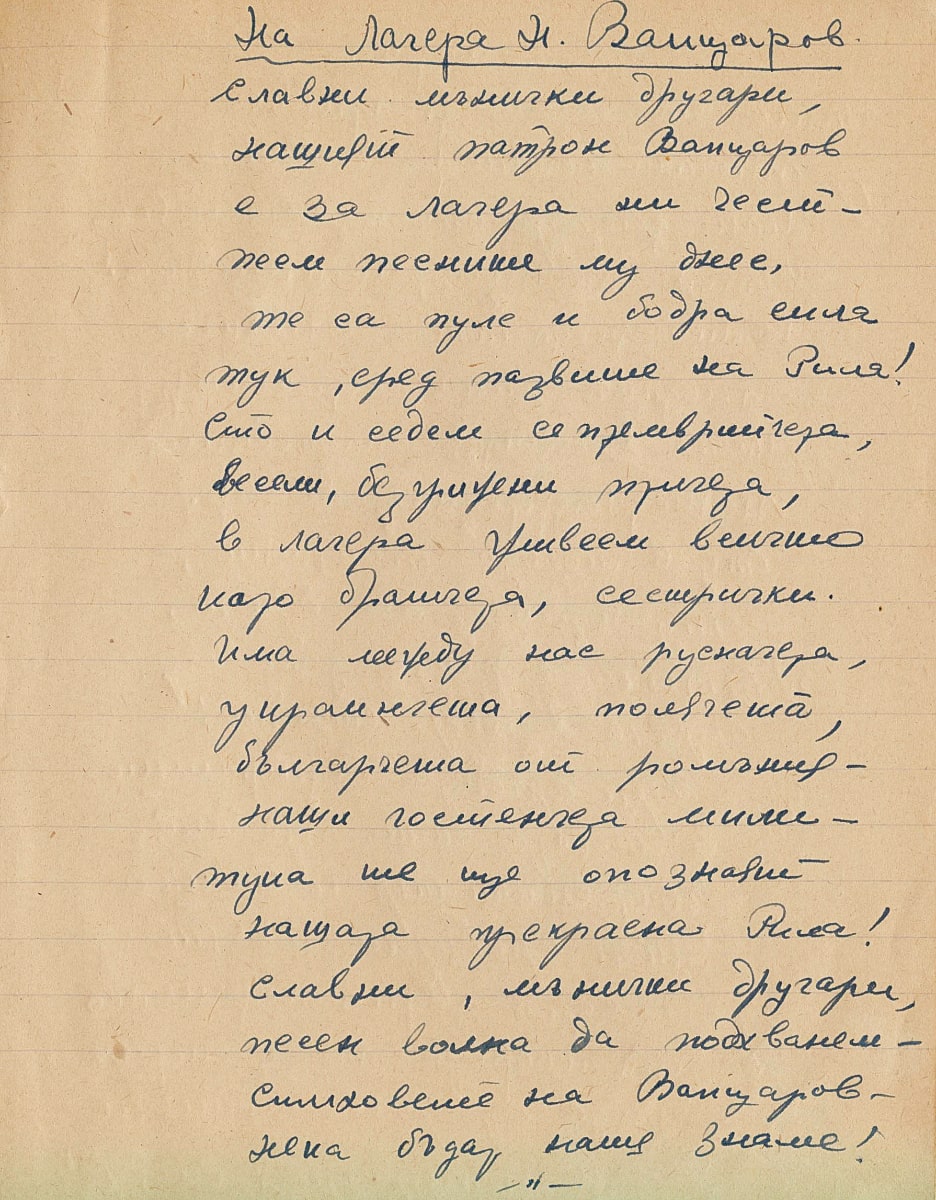 На Лагера Н. Вапцаров.
Славни мънички другари,
нашият патрон Вапцаров
е за лагера ни чест –
пеем песните му днес,
те са пулс и бодра сила
тук, сред пазвите на Рила!
Сто и седем септемврийчета,
весели, безгрижни птичета,
в лагера живеем всички
като братчета, сестрички.
Има между нас русначета,
украинчета, полячета,
българчета от ромъния –
наши гостенчета мили –
тука те ще опознаят
нашата прекрасна Рила!
Славни, мънички другари,
песен волна да подхванем –
Стиховете на Вапцаров –
нека бъдат наше знаме!
– " –